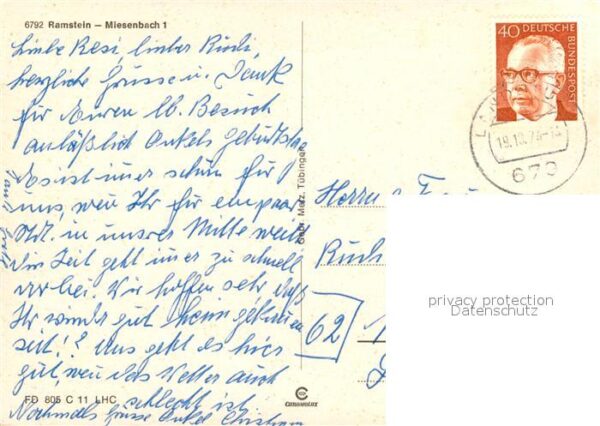 6792 Ramstein — Miesenbach 1
Liebe Resi, lieber Rudi,
herzliche Grüsse u. Dank
für Euren lb. Besuch
anläßlich Onkels Geburtstag
Es ist immer schön für
uns, wenn Ihr für ein paar
Std. in unsrer Mitte weilt
Die Zeit geht immer zu schnell
vorbei. Wir hoffen sehr daß
Ihr wieder gut heim gefahren
seid! Uns geht es hier
gut, wenn das Wetter auch
schlecht ist
Nochmals Grüsse Onkel Christian
FD 805 C 11 LHC
Gebr. Metz, Tübingen
40 DEUTSCHE BUNDESPOST
LANDS
19.10.
679
Herrn u.
62
privacy protection
Datenschutz